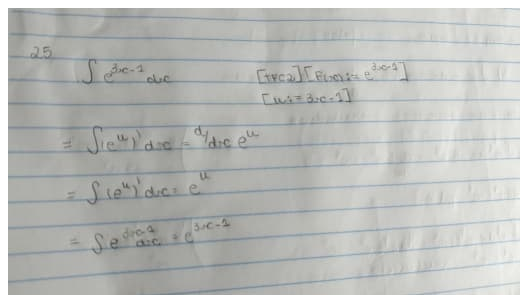 25
∫ e^{3x-1} dx [TFC2] [F(x) := e^{3x-1}]
[u := 3x-1]
= ∫ (e^u)' dx = d/dx e^u
= ∫ (e^u)' dx = e^u
= ∫ e^{3x-1} dx = e^{3x-1}